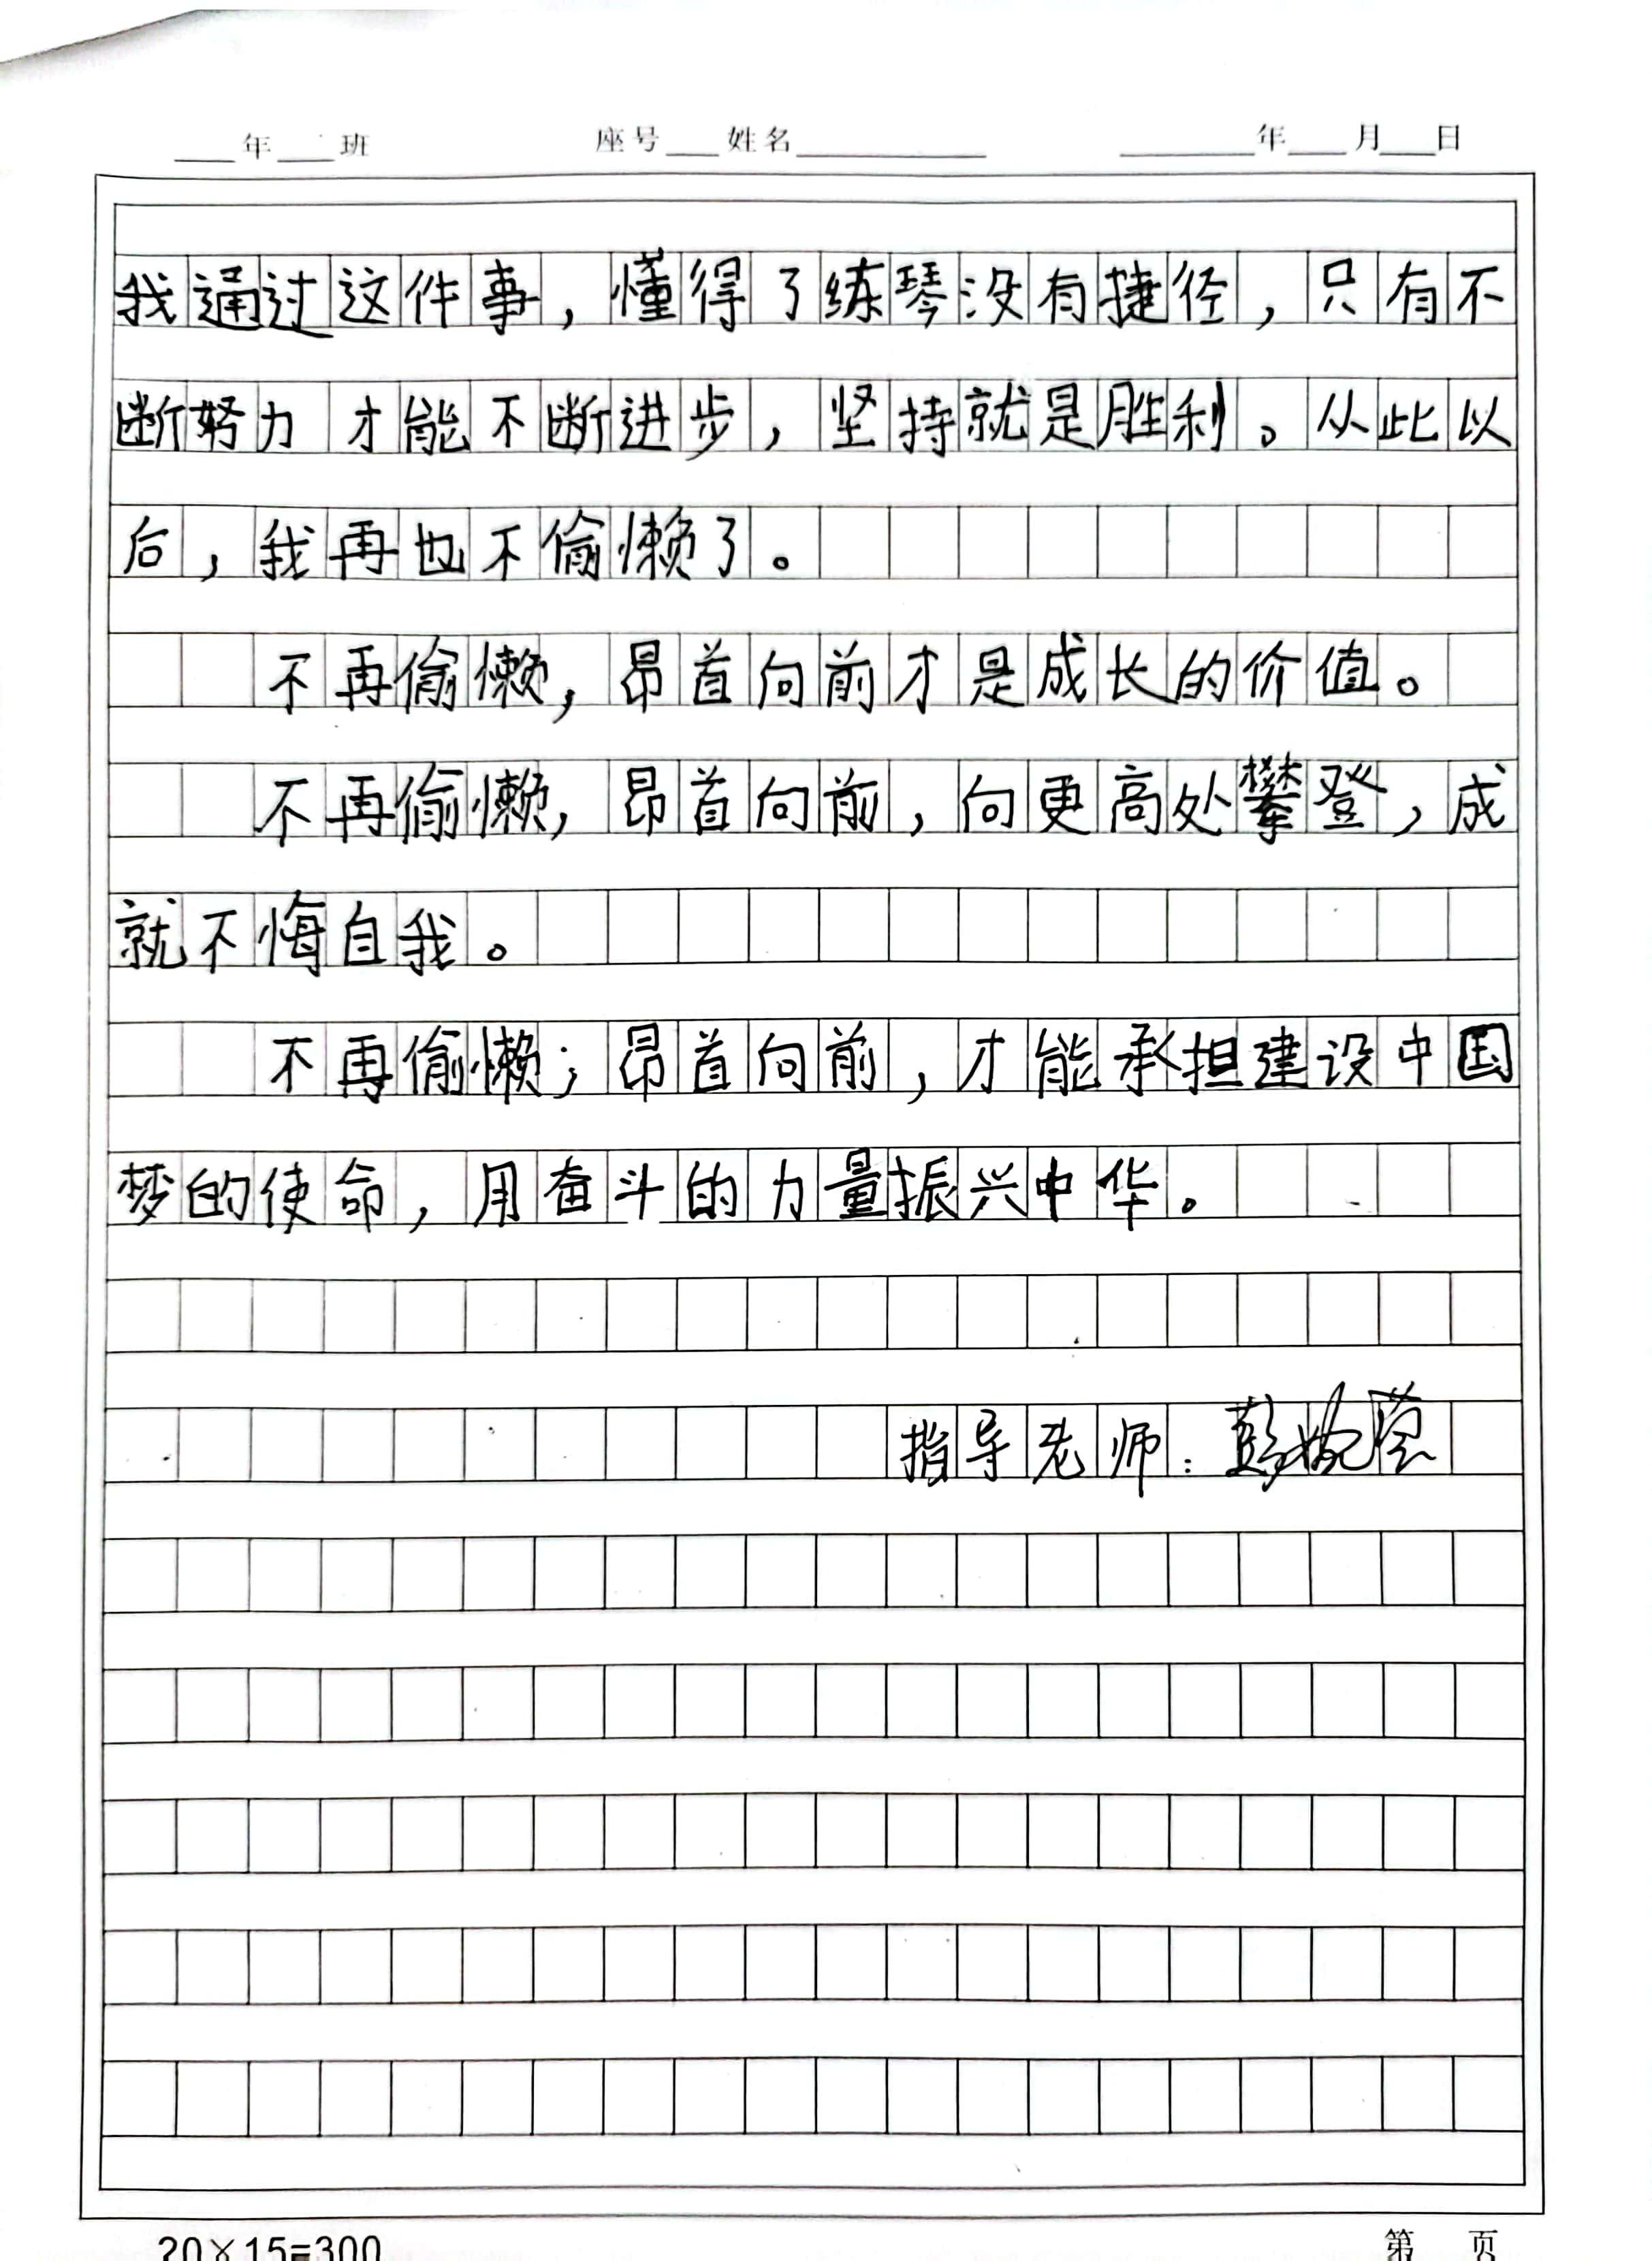 年 班 座号 姓名 年 月 日
我通过这件事，懂得了练琴没有捷径，只有不
断努力才能不断进步，坚持就是胜利。从此以
后，我再也不偷懒了。
不再偷懒，昂首向前才是成长的价值。
不再偷懒，昂首向前，向更高处攀登，成
就不悔自我。
不再偷懒；昂首向前，才能承担建设中国
梦的使命，用奋斗的力量振兴中华。
指导老师：彭婉莹
20×15=300 第 页